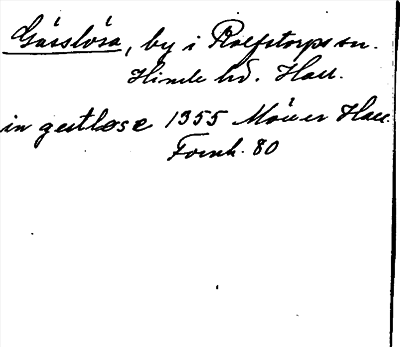 Gässlösa, by i Rolfstorps sn.
Himle hd. Hall.
in gestløse 1355 Möller Hall.
Fornh. 80